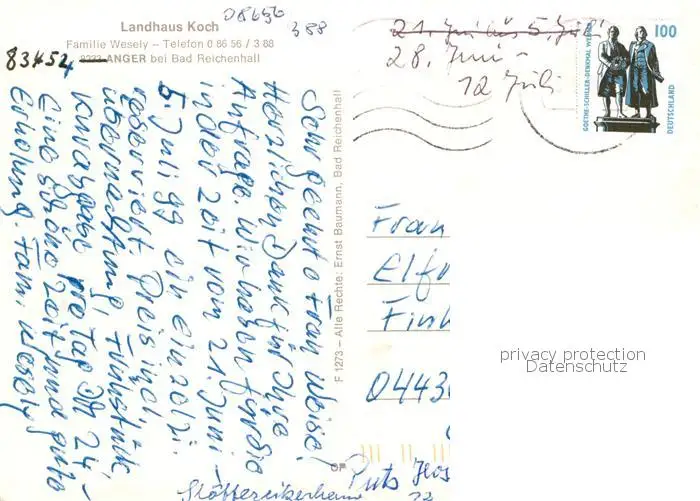 Landhaus Koch
Familie Wesely – Telefon 0 86 56 / 3 88
08656
388
83454 ANGER bei Bad Reichenhall
21. Juni bis 5. Juli
28. Juni –
12. Juli
100
GOETHE-SCHILLER-DENKMAL WEIMAR
DEUTSCHLAND
Sehr geehrte Frau Weise!
Herzlichen Dank für Ihre
Anfrage. Wir haben für Sie
in der Zeit vom 21. Juni –
5. Juli 99 ein Einzelzi.
reserviert. Preis incl.
Übernachtung, Frühstück,
Kurabgabe pro Tag DM 24,-
Eine schöne Zeit und gute
Erholung. Fam. Wesely
F 1273 – Alle Rechte: Ernst Baumann, Bad Reichenhall
Frau
Elf
Fin
0443
privacy protection
Datenschutz
OF